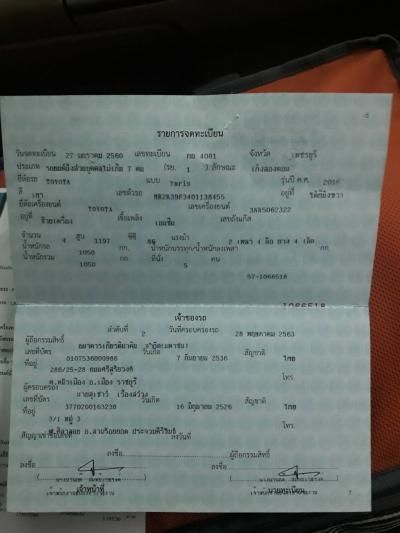 รายการจดทะเบียน
วันจดทะเบียน 27 มกราคม 2560 เลขทะเบียน กย 4081 จังหวัด เพชรบุรี
ประเภท รถยนต์นั่งส่วนบุคคลไม่เกิน 7 คน (รย. 1 ) ลักษณะ เก๋งสองตอน
ยี่ห้อรถ TOYOTA แบบ Yaris รุ่นปี ค.ศ. 2016
สี เทา เลขตัวรถ อยู่ที่
ยี่ห้อเครื่องยนต์ TOYOTA เลขเครื่องยนต์ 3NR5062322
อยู่ที่ ซ้ายเครื่อง เชื้อเพลิง เบนซิน เลขถังแก๊ส
จำนวน 4 สูบ 1197 ซีซี แรงม้า 2 เพลา 4 ล้อ ยาง 4 เส้น
น้ำหนักรถ 1050 กก. น้ำหนักบรรทุก/น้ำหนักลงเพลา กก.
น้ำหนักรวม 1050 กก. ที่นั่ง 5 คน
57-1066518
1066518
เจ้าของรถ
ลำดับที่ 2 วันที่ครอบครองรถ 28 พฤษภาคม 2563
ผู้ถือกรรมสิทธิ์ ธนาคารเกียรตินาคิน จำกัด(มหาชน)
เลขที่บัตร 0107536000986 วันเกิด 7 กันยายน 2536 สัญชาติ ไทย
ที่อยู่ 286/25-28 ถนนศรีสุริยวงศ์
ต.หน้าเมือง อ.เมือง ราชบุรี โทร.
ผู้ครอบครอง
เลขที่บัตร 3770200163230 วันเกิด 16 มิถุนายน 2526 สัญชาติ ไทย
ที่อยู่ 3/1 หมู่ 3 โทร.
ต.ศิลาลอย อ.สามร้อยยอด ประจวบคีรีขันธ์
สัญญาเช่าซื้อเลขที่ ลงวันที่
ลงชื่อ ผู้ถือกรรมสิทธิ์
ลงชื่อ ลงชื่อ
เจ้าหน้าที่ นายทะเบียน
7